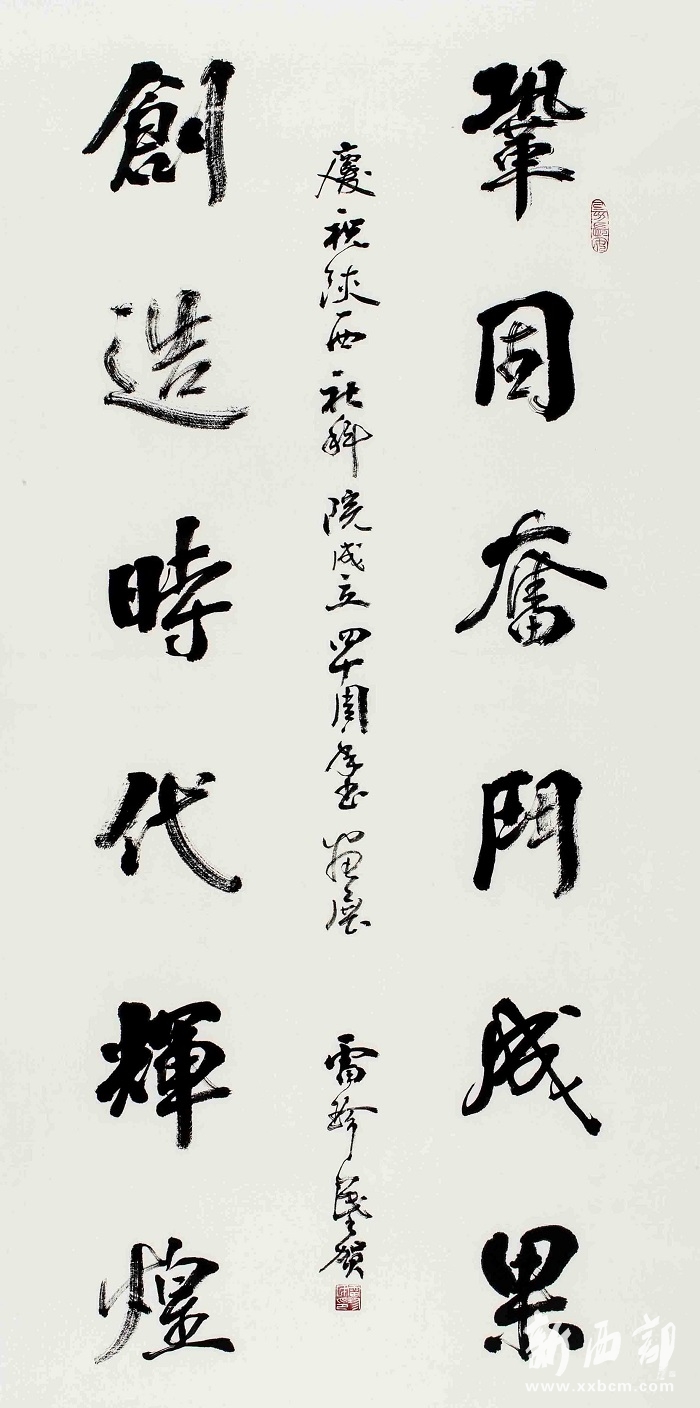 鞏固奮鬥成果
慶祝陝西社科院成立四十周年書畫展
雷珍
創造時代輝煌
新西部
www.xxbcm.com